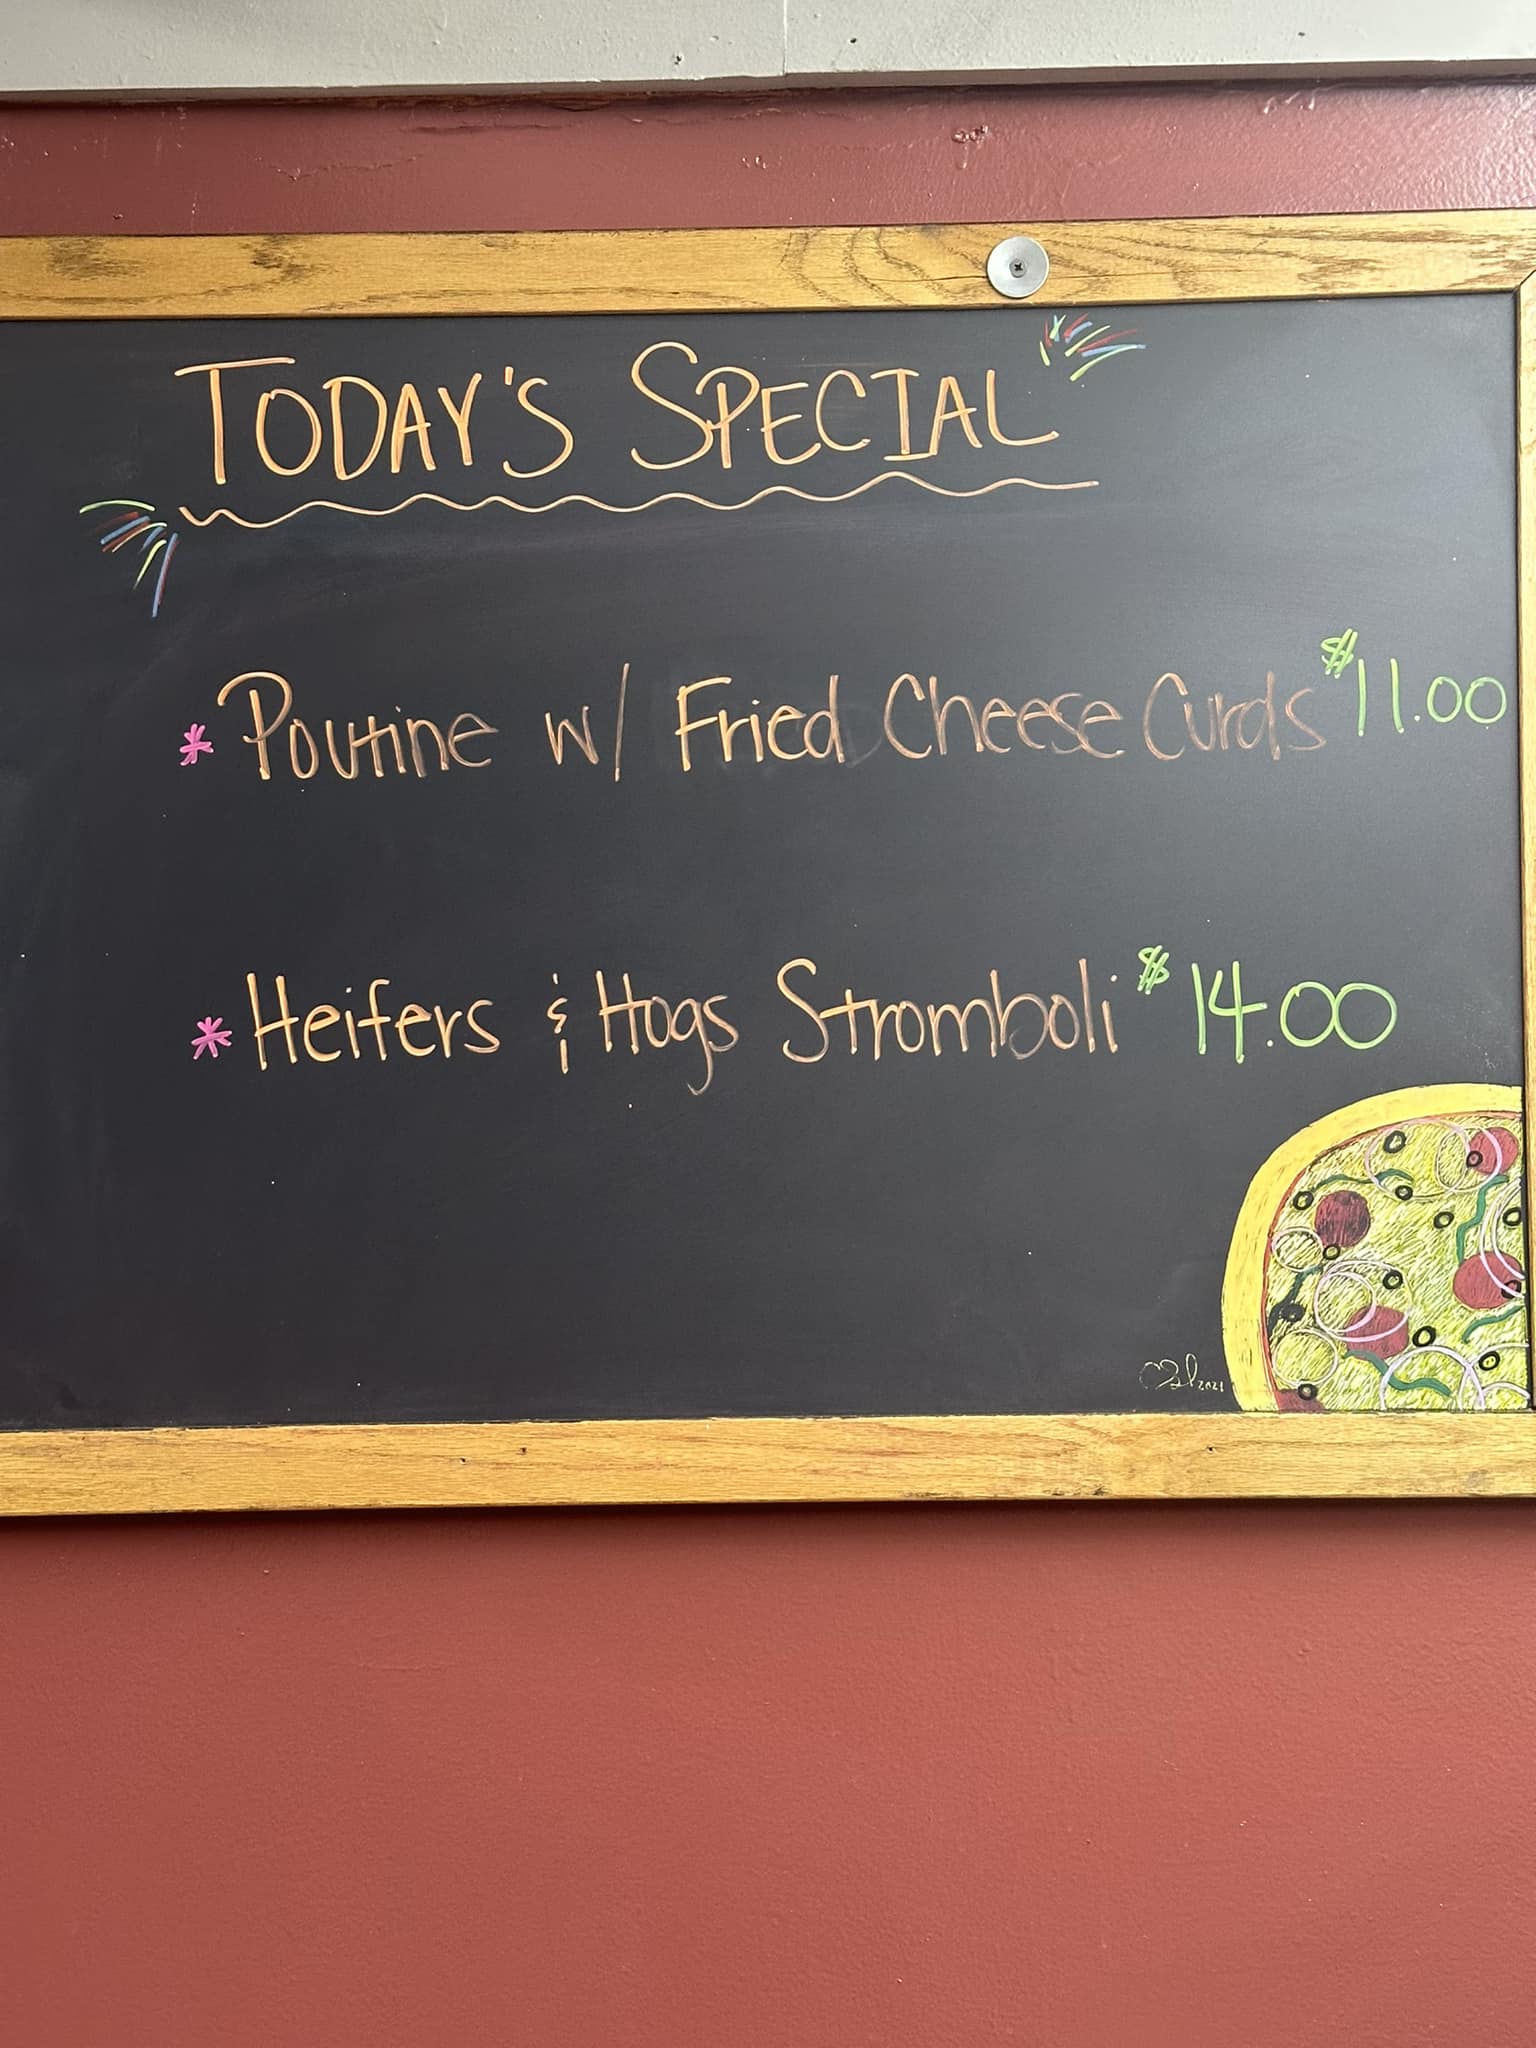 TODAY'S SPECIAL
* Poutine w/ Fried Cheese Curds $11.00
* Heifers & Hogs Stromboli $14.00
2021